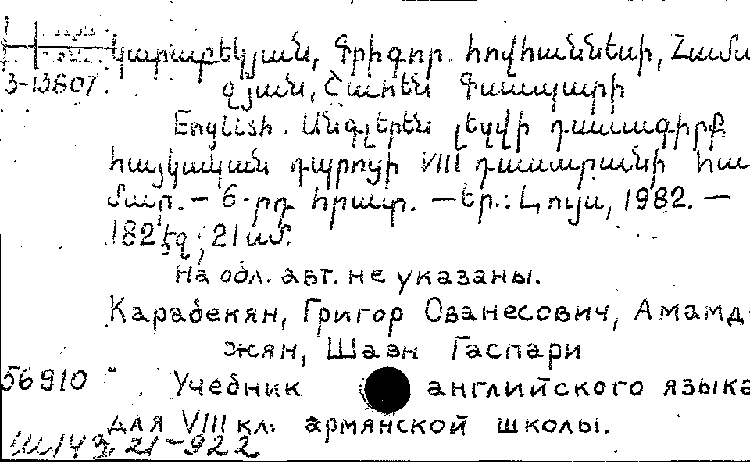 Կարաբեկյան, Գրիգոր Հովհաննեսի, Համա
զյան, Շավեն Գասպարի
English. Անգլերեն լեզվի դասագիրք
հայկական դպրոցի VIII դասարանի հա
մար. — 6-րդ հրատ. — Եր.: Լույս, 1982. —
182 էջ; 21 սմ.
На обл. авт. не указаны.
Карабекян, Григор Ованесович, Амамд-
жян, Шавн Гаспари
56910 Учебник английского языка
для VIII кл. армянской школы.
21-922